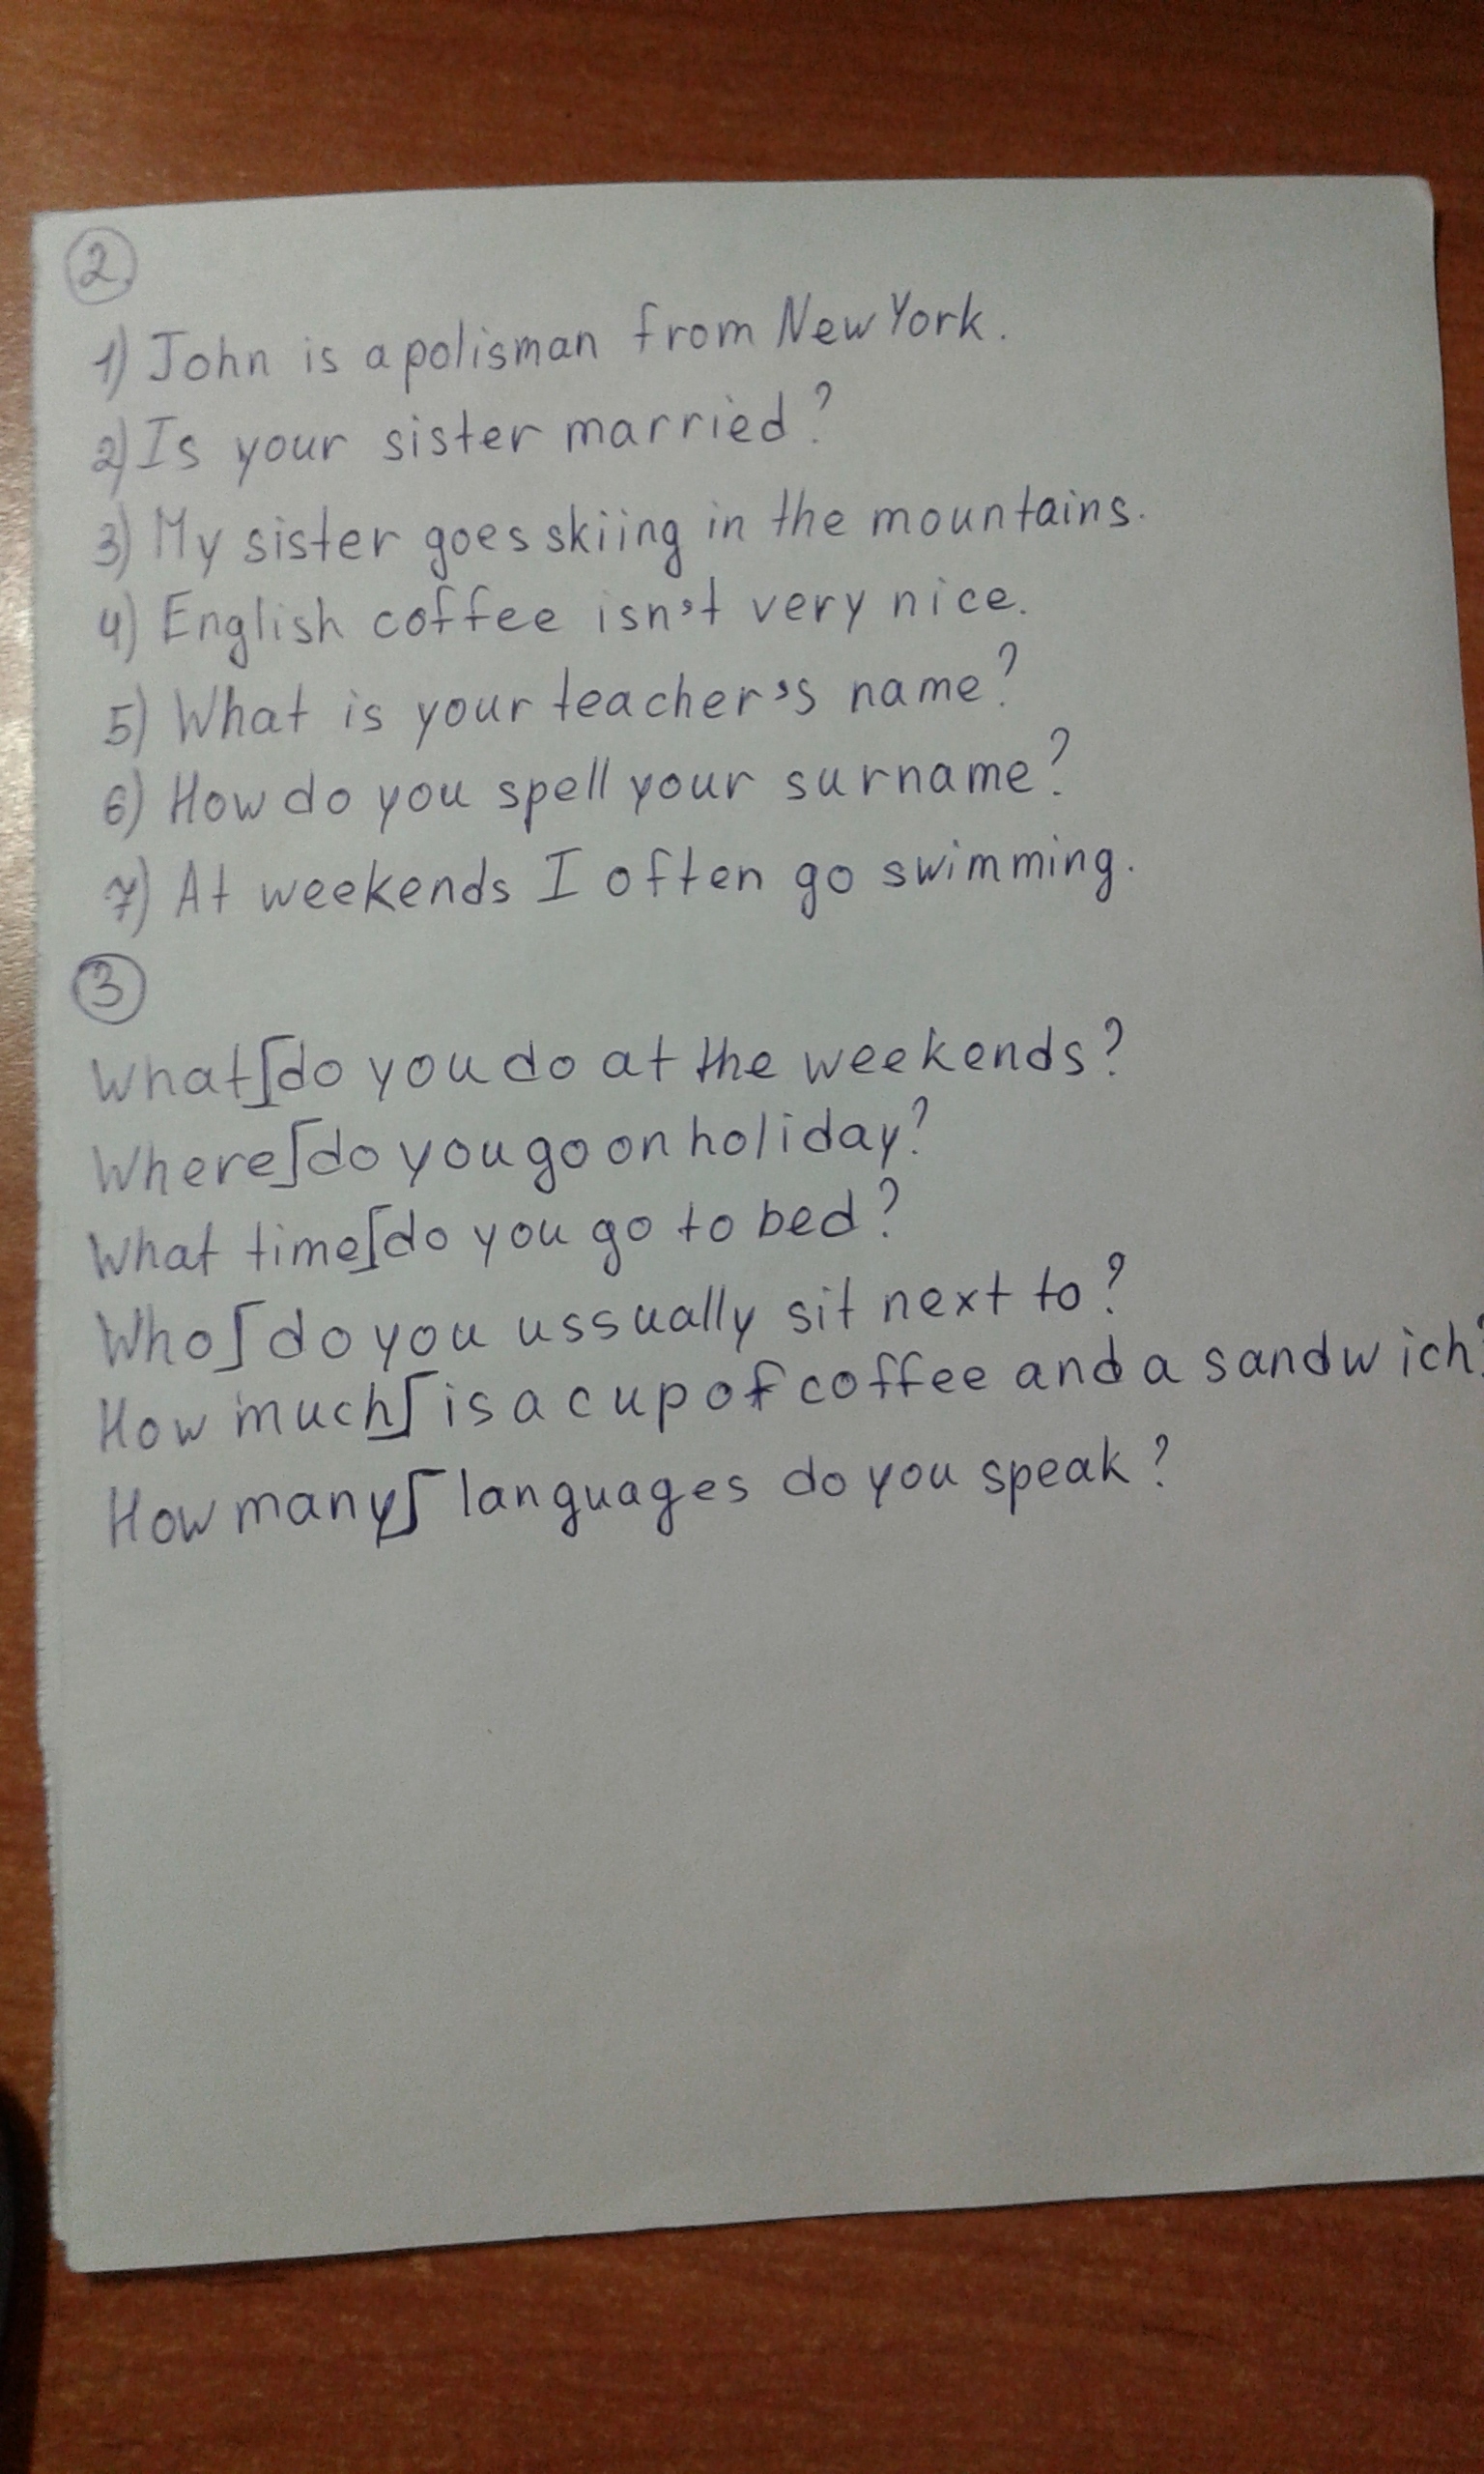 2.
1) John is a polisman from New York.
2) Is your sister married?
3) My sister goes skiing in the mountains.
4) English coffee isn't very nice.
5) What is your teacher's name?
6) How do you spell your surname?
7) At weekends I often go swimming.
3
What do you do at the weekends?
Where do you go on holiday?
What time do you go to bed?
Who do you ussually sit next to?
How much is a cup of coffee and a sandwich?
How many languages do you speak?